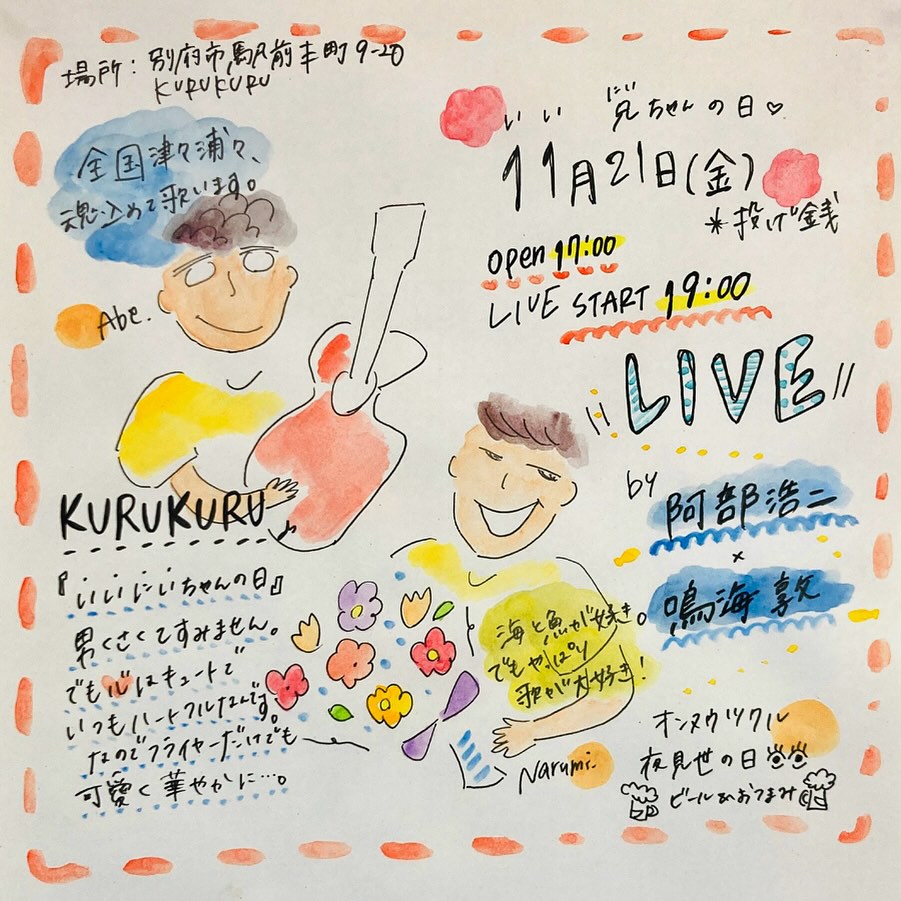 場所：別府市駅前本町9-20
KURUKURU
全国津々浦々、
魂込めて歌います。
Abe.
いい兄ちゃんの日♡
にい
11月21日(金)
*投げ銭
open 17:00
LIVE START 19:00
LIVE
by
阿部浩二
×
鳴海敦
KURUKURU
『いいにいちゃんの日』
男くさくてすみません。
でも心はキュートで
いつもハートフルなんです。
なのでフライヤーだけでも
可愛く華やかに…。
海と魚が好き。
でもやっぱり
歌が大好き！
Narumi.
オンヌウツクル
夜見世の日
ビール&おつまみ